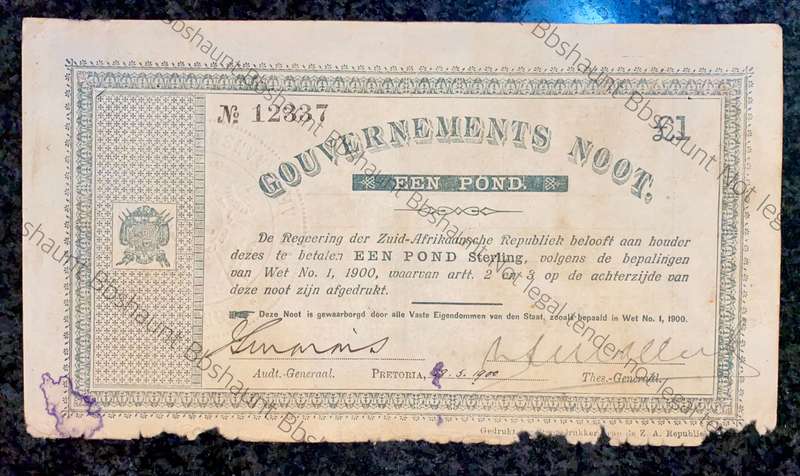 № 12337
£1
GOUVERNEMENTS NOOT.
EEN POND.
De Regeering der Zuid-Afrikaansche Republiek belooft aan houder
dezes te betalen EEN POND Sterling, volgens de bepalingen
van Wet No. 1, 1900, waarvan artt. 2 en 3 op de achterzijde van
deze noot zijn afgedrukt.
Deze Noot is gewaarborgd door alle Vaste Eigendommen van den Staat, zooals bepaald in Wet No. 1, 1900.
Audt.-Generaal. PRETORIA, 5. 1900 Thes.-Generaal.
Gedrukt de Z. A. Republiek
Bbshaunt Not legal tender